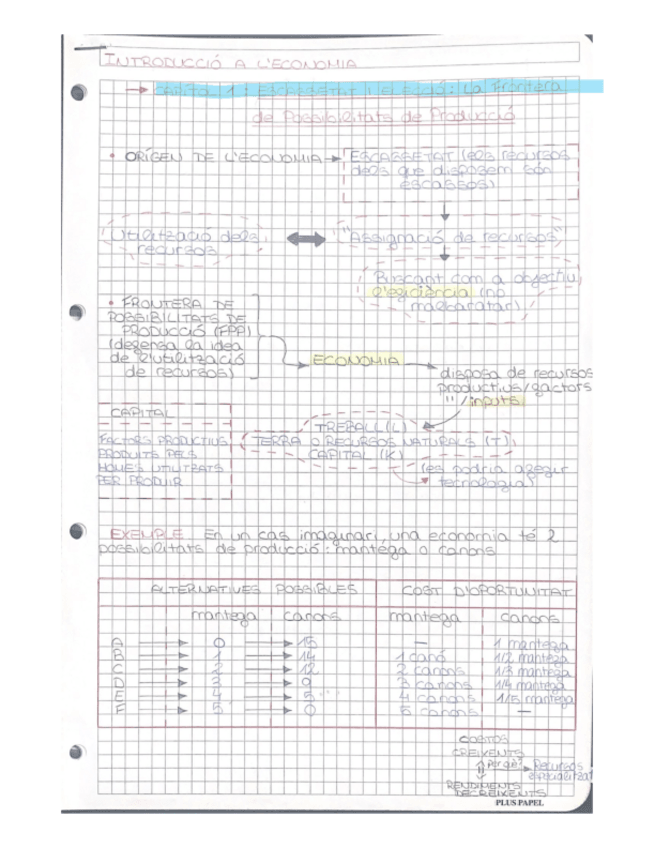 INTRODUCCIÓ A L'ECONOMIA
→ CAPÍTOL 1: ESCASSETAT I ELECCIÓ: La Frontera
de Possibilitats de Producció
• ORÍGEN DE L'ECONOMIA → ESCASSETAT (els recursos
dels que disposem són
escassos)
Utilització dels
recursos
"Assignació de recursos"
Buscant com a objectiu
l'eficiència (no
malbaratar)
• FRONTERA DE
POSSIBILITATS DE
PRODUCCIÓ (FPP)
(defensa la idea
de l'utilització
de recursos)
ECONOMIA
disposa de recursos
productius/factors
"/inputs
TREBALL (L)
TERRA O RECURSOS NATURALS (T)
CAPITAL (K)
(es podria afegir
tecnologia)
CAPITAL
FACTORS PRODUCTIUS
PRODUITS PELS
HOMES UTILITZATS
PER PRODUIR
EXEMPLE En un cas imaginari, una economia té 2
possibilitats de producció: mantega o canons
ALTERNATIVES POSSIBLES COST D'OPORTUNITAT
mantega canons mantega canons
A → 0 → 15 — 1 mantega
B → 1 → 14 1 canó 1/2 mantega
C → 2 → 12 2 canons 1/3 mantega
D → 3 → 9 3 canons 1/4 mantega
E → 4 → 5 4 canons 1/5 mantega
F → 5 → 0 5 canons —
COSTOS
CREIXENTS
Per què? → Recursos
especialitzat
RENDIMENTS
DECREIXENTS
PLUS PAPEL